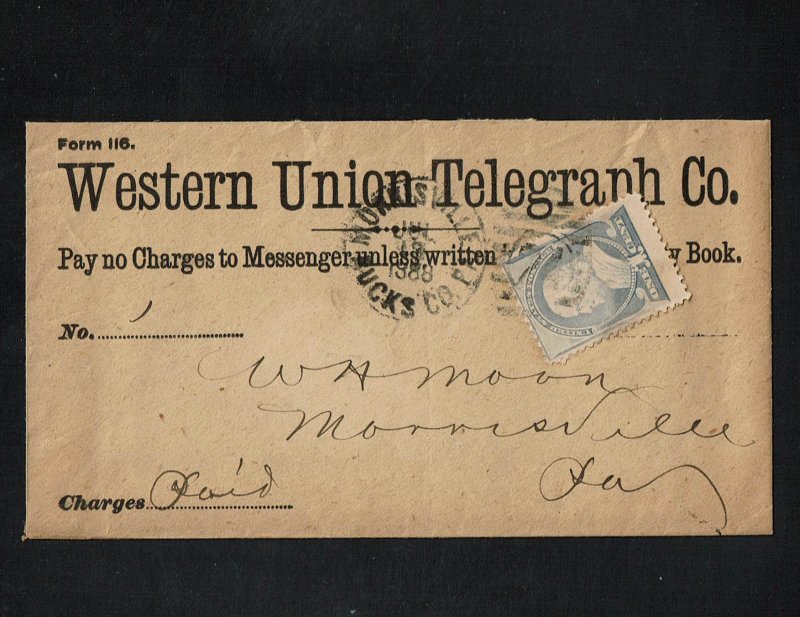 Form 116.
Western Union Telegraph Co.
Pay no Charges to Messenger unless written y Book.
MORRISVILLE
1888
BUCKS CO. PA.
ONE CENT
No. 1
W H Moon
Morrisville
Pa
Charges Paid